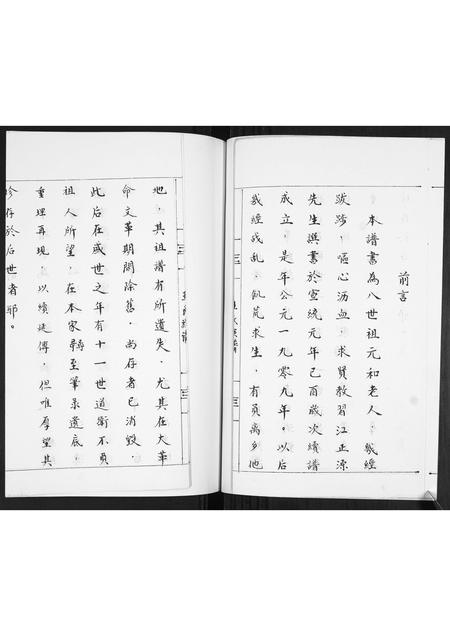 前言
本譜書為八世祖元和老人，幾經
跋跡，嘔心沥血，求賢教習江正源
先生撰書於宣統元年已酉歲次續譜
成立，是年公元一九零九年。以后
幾經战乱，飢荒求生，有頁离乡他
地，其祖譜有所遺失，尤其在大革
命文革期間除舊，尚存者已消毀，
此后在戓世之年有十一世道衡不負
祖人所望，在本家尋至筆录遺底，
重理再現，以續延傳，但唯厚望其
珍存於后世者耶。
三
三